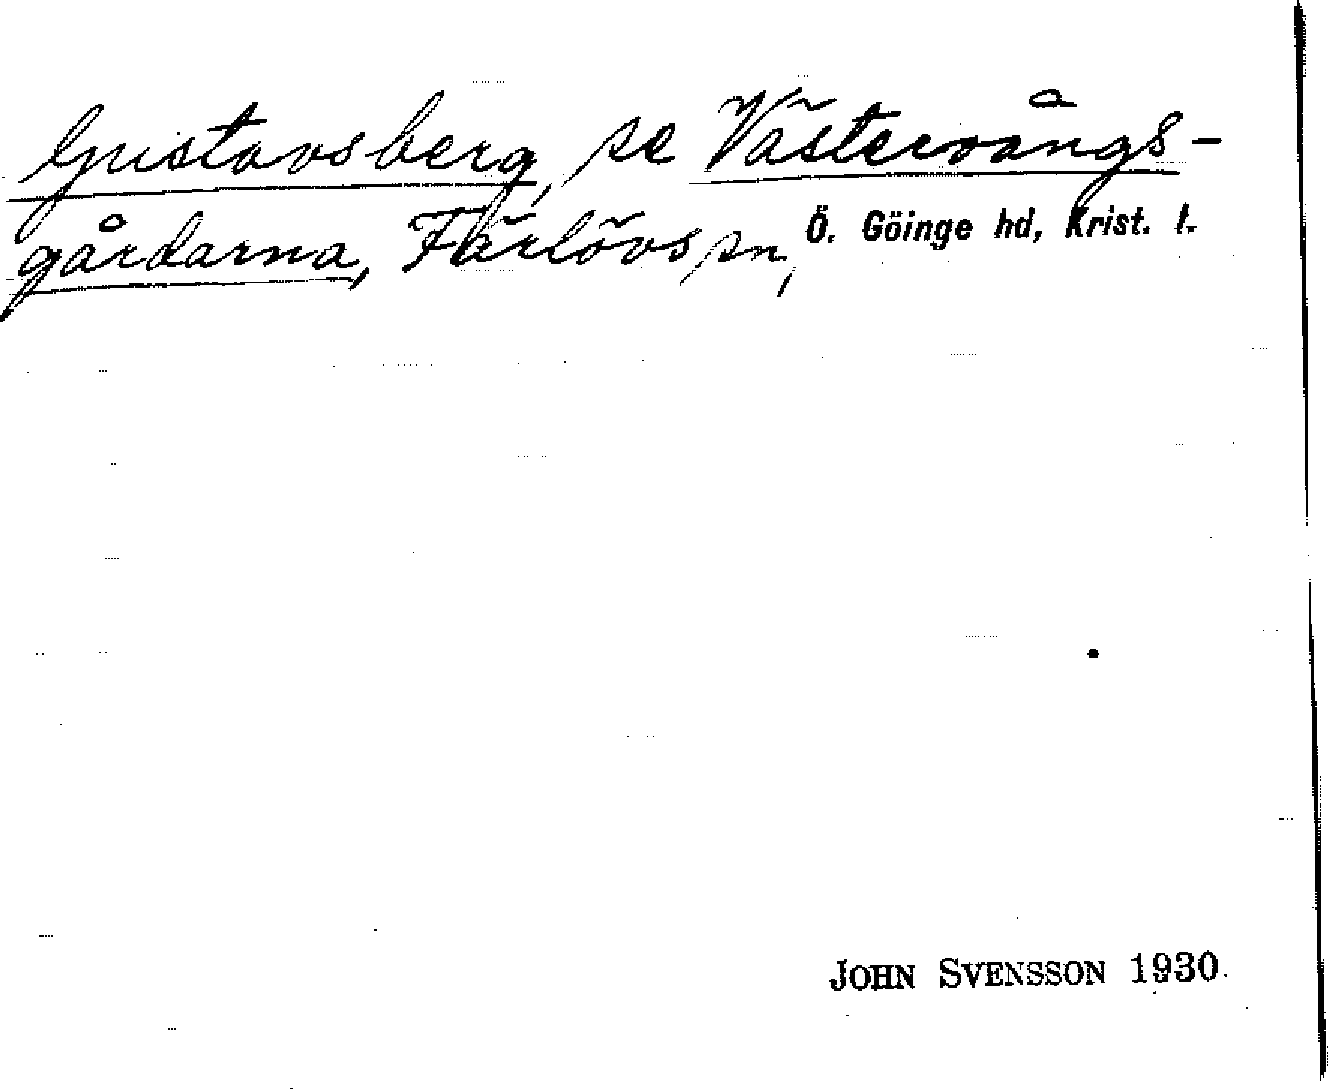 Gustavsberg, se Västervångs-
gårdarna, Färlövs sn, Ö. Göinge hd, Krist. l.
JOHN SVENSSON 1930.